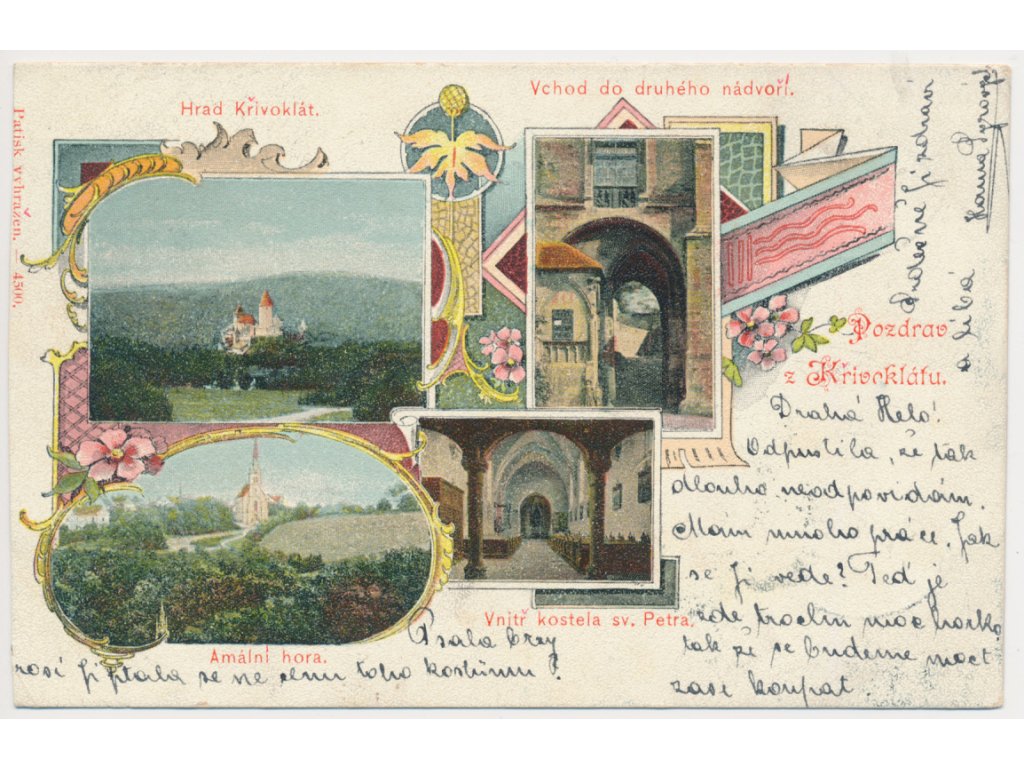 Hrad Křivoklát.
Vchod do druhého nádvoří.
Patisk vyhražen. — 4500,
Pozdrav
z Křivoklátu.
Amální hora.
Vnitř kostela sv. Petra.
Drahá Helo!
Odpustila, že tak
dlouho neodpovídám.
Mám mnoho práce. Jak
se Ji vede? Teď je
zde trochu moc horko
tak že se budeme moct
zase koupat.
Psala brzy
Ji ptala se na cenu toho kostýmu!
Srdečně Ji zdraví
a líbá
Hanna